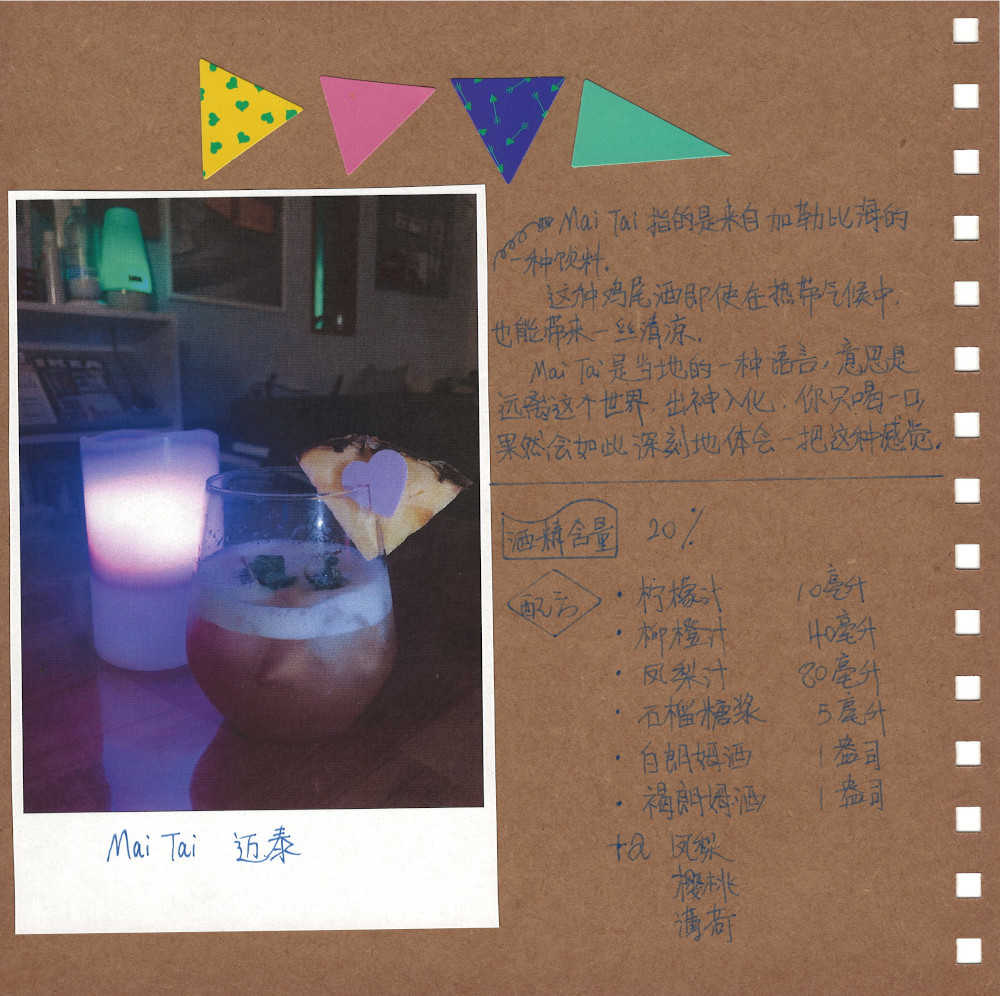 Mai Tai 指的是来自加勒比海的
一种饮料.
这种鸡尾酒即使在热带气候中,
也能带来一丝清凉.
Mai Tai 是当地的一种语言,意思是
远离这个世界,出神入化.你只喝一口,
果然会如此深刻地体会一把这种感觉.
酒精含量 20%
配方
· 柠檬汁 10毫升
· 柳橙汁 40毫升
· 凤梨汁 80毫升
· 石榴糖浆 5毫升
· 白朗姆酒 1盎司
· 褐朗姆酒 1盎司
+a 凤梨
樱桃
薄荷
Mai Tai 迈泰